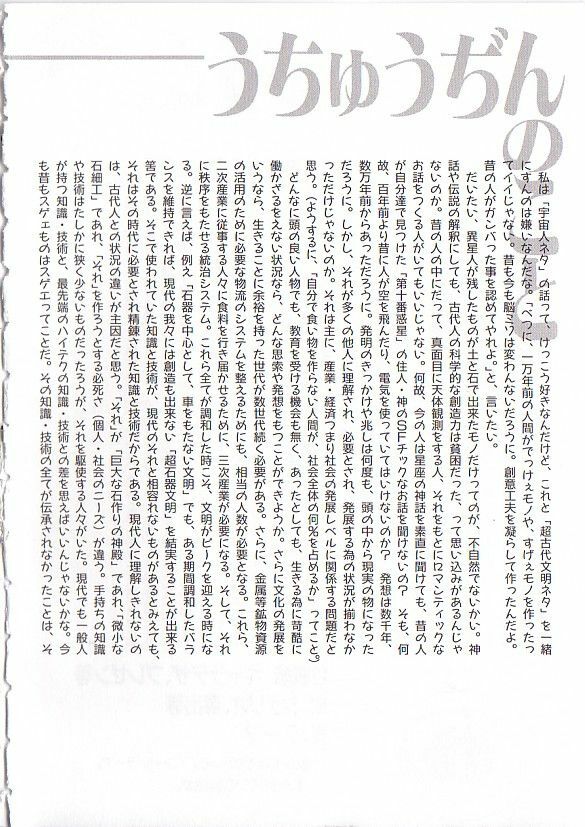 うちゅうぢんの
私は「宇宙人ネタ」の話って、けっこう好きなんだけど、これと「超古代文明ネタ」を一緒
にすんのは嫌いなんだな。「べつに、一万年前の人間がでっけェモノや、すげェモノを作ったっ
てイイじゃない。昔も今も脳ミソは変わんないだろうに。創意工夫を凝らして作ったんだよ。
昔の人がガンバった事を認めてやれよ。」と、言いたい。
だいたい、異星人が残したものが土と石で出来たモノだけってのが、不自然でないかい。神
話や伝説の解釈にしても、古代人の科学的な創造力は貧困だった、って思い込みがあるんじゃ
ないのか。昔の人の中にだって、真面目に天体観測をする人、それをもとにロマンティックな
お話をつくる人がいてもいいじゃない。何故、今の人は星座の神話を素直に聞けても、昔の人
が自分達で見つけた「第十番惑星」の住人・神のSFチックなお話を聞けないの? そも、何
故、百年前より昔に人が空を飛んだり、電気を使っていてはいけないのか? 発想は数千年、
数万年前からあっただろうに。発明のきっかけや兆しは何度も、頭の中から現実の物になった
だろうに。しかし、それが多くの他人に理解され、必要とされ、発展する為の状況が揃わなか
っただけじゃないのか。それは主に、産業・経済つまり社会の発展レベルに関係する問題だと
思う。(ようするに、「自分で食い物を作らない人間が、社会全体の何%を占めるか」ってこと。)
どんなに頭の良い人物でも、教育を受ける機会も無く、あったとしても、生きる為に苛酷に
働かざるをえない状況なら、どんな思索や発想をもつことができようか。さらに文化の発展を
いうなら、生きることに余裕を持った世代が数世代続く必要がある。さらに、金属等鉱物資源
の活用のために必要な物流のシステムを整えるためにも、相当の人数が必要となる。これら、
二次産業に従事する人々に食料を行き届かせるために、三次産業が必要になる。そして、それ
に秩序をもたせる統治システム。これら全てが調和した時こそ、文明がピークを迎える時にな
る。逆に言えば、例え「石器を中心として、車をもたない文明」でも、ある期間調和したバラ
ンスを維持できれば、現代の我々には創造も出来ない「超石器文明」を結実することが出来る
筈である。そこで使われていた知識と技術が、現代のそれと相容れないものがあるとみえても、
それはその時代に必要とされ精錬された知識と技術だからである。現代人に理解しきれないの
は、古代人との状況の違いが主因だと思う。「それ」が「巨大な石作りの神殿」であれ、「微小な
石細工」であれ、「それ」を作ろうとする必死さ(個人・社会のニーズ)が違う。手持ちの知識
や技術はたしかに狭く少ないものだったろうが、それを駆使する人々がいた。現代でも一般人
が持つ知識・技術と、最先端のハイテクの知識・技術との差を思えばいいんじゃないかな。今
も昔もスゲェものはスゲエってことだ。その知識・技術の全てが伝承されなかったことは、そ